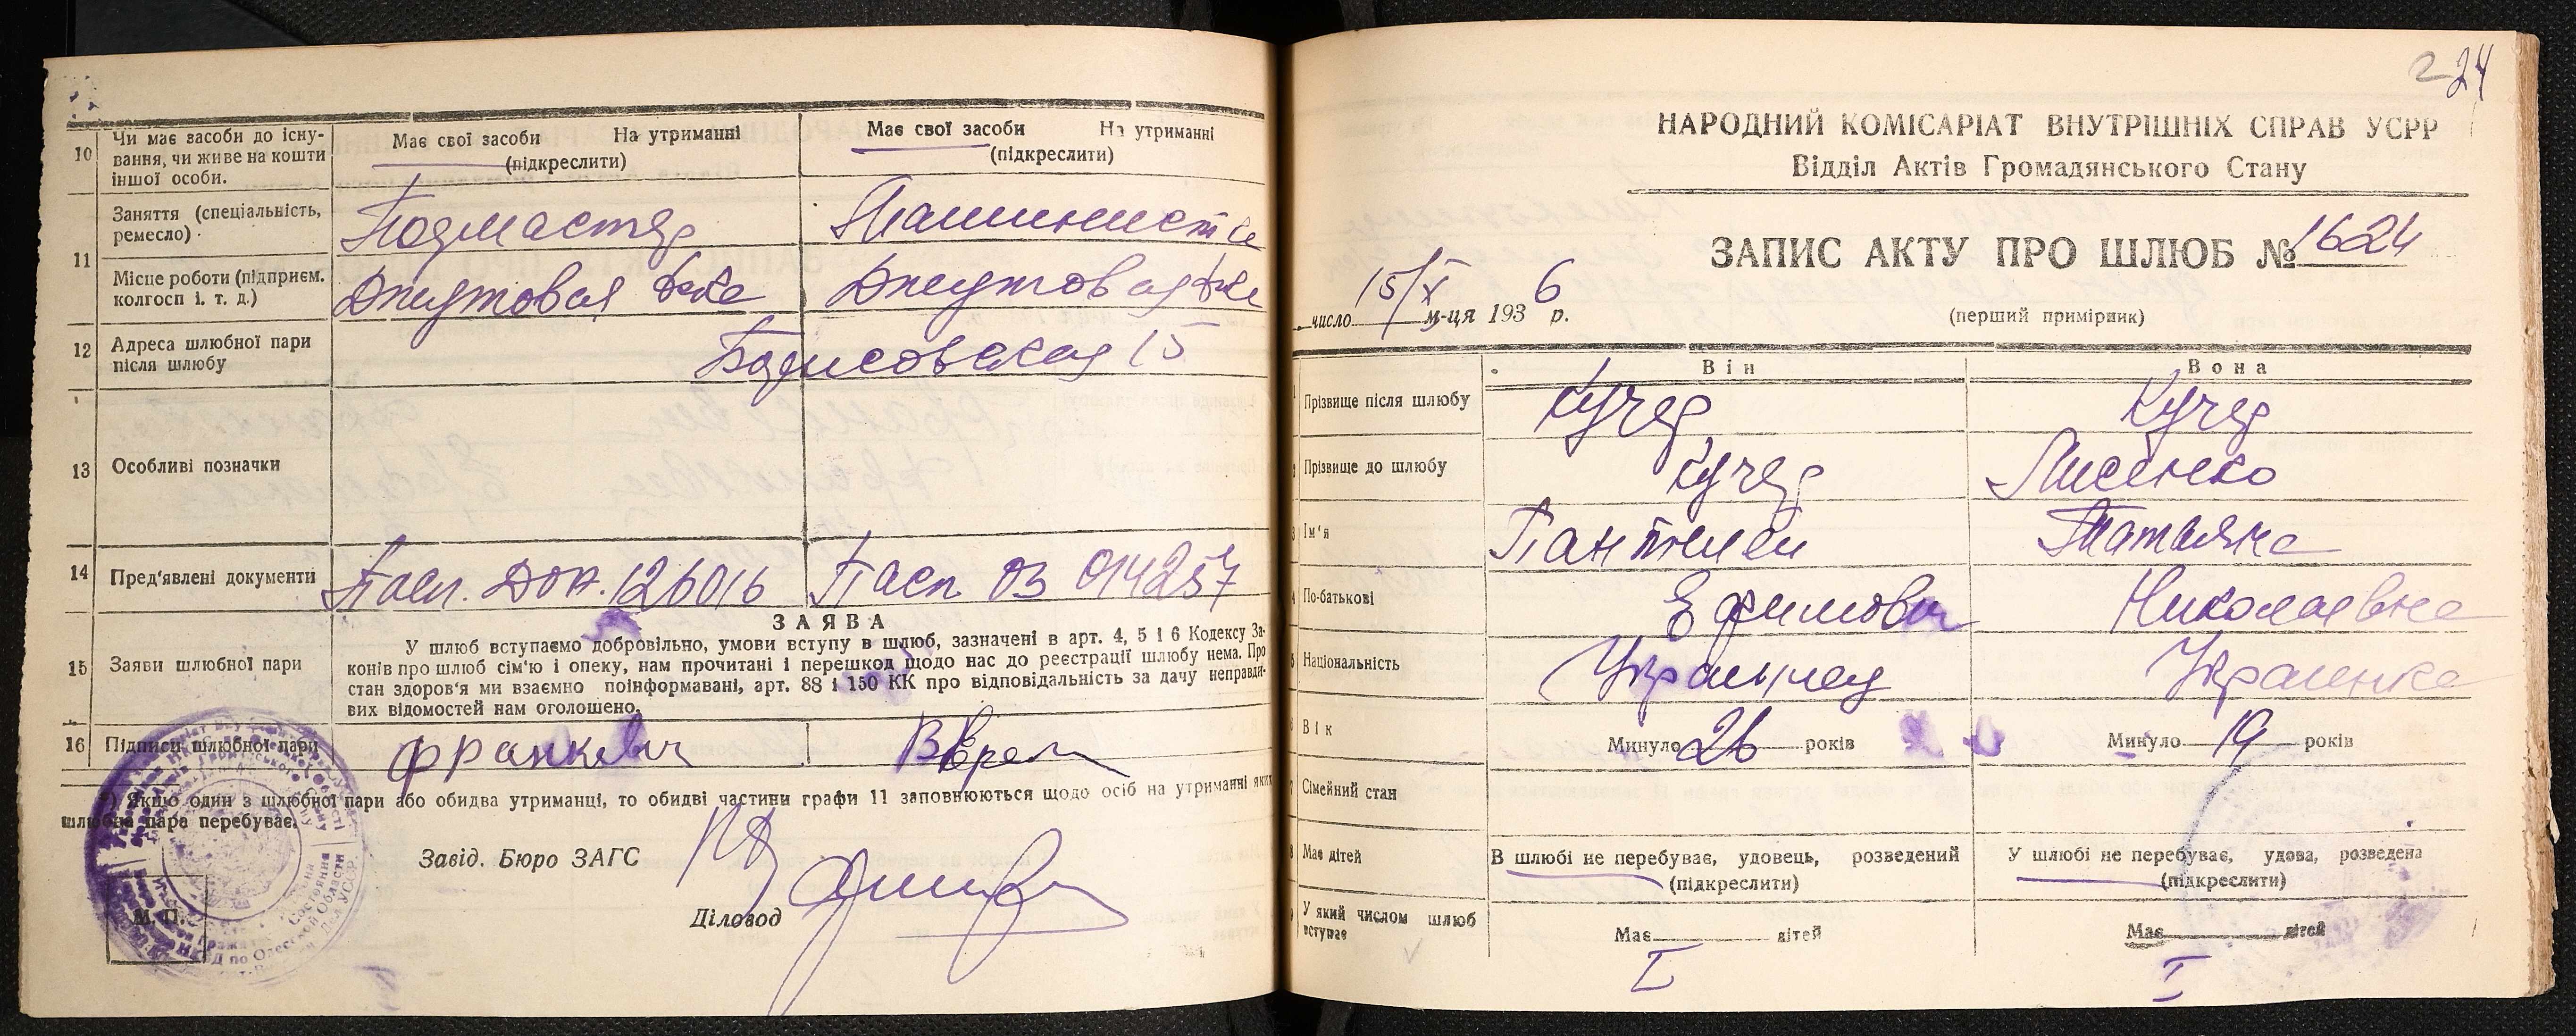 10 Чи має засоби до існу-
вання, чи живе на кошти
іншої особи.
Має свої засоби На утриманні
(підкреслити)
Має свої засоби На утриманні
(підкреслити)
11 Заняття (спеціальність,
ремесло)
Подмастер
Машинистка
Місце роботи (підприєм.
колгосп і. т. д.)
Джутовая ф-ка
Джутовая ф-ка
12 Адреса шлюбної пари
після шлюбу
Борисовская 15
13 Особливі позначки
14 Пред'явлені документи
Пасп. ДОА. 126016
Пасп ОЗ 014257
15 Заяви шлюбної пари
ЗАЯВА
У шлюб вступаємо добровільно, умови вступу в шлюб, зазначені в арт. 4, 5 і 6 Кодексу За-
конів про шлюб сім'ю і опеку, нам прочитані і перешкод щодо нас до реєстрації шлюбу нема. Про
стан здоров'я ми взаємно поінформавані, арт. 88 і 150 КК про відповідальність за дачу неправди-
вих відомостей нам оголошено.
16 Підписи шлюбної пари
Франкевич
*) Якщо один з шлюбної пари або обидва утриманці, то обидві частини графи 11 заповнюються щодо осіб на утриманні яких
шлюбна пара перебуває.
Завід. Бюро ЗАГС
Діловод
М. П.
224
НАРОДНИЙ КОМІСАРІАТ ВНУТРІШНІХ СПРАВ УСРР
Відділ Актів Громадянського Стану
ЗАПИС АКТУ ПРО ШЛЮБ № 1624
число 15/X м-ця 1936 р.
(перший примірник)
Він Вона
1 Прізвище після шлюбу Кучер Кучер
2 Прізвище до шлюбу Кучер Лисенко
3 Ім'я Пантилей Татьяна
4 По-батькові Ефимович Николаевна
5 Національність Украинец Украинка
6 Вік Минуло 26 років Минуло 19 років
7 Сімейний стан
8 Має дітей
В шлюбі не перебуває, удовець, розведений
(підкреслити)
У шлюбі не перебуває, удова, розведена
(підкреслити)
9 У який числом шлюб
вступає
Має дітей
Має дітей
I I